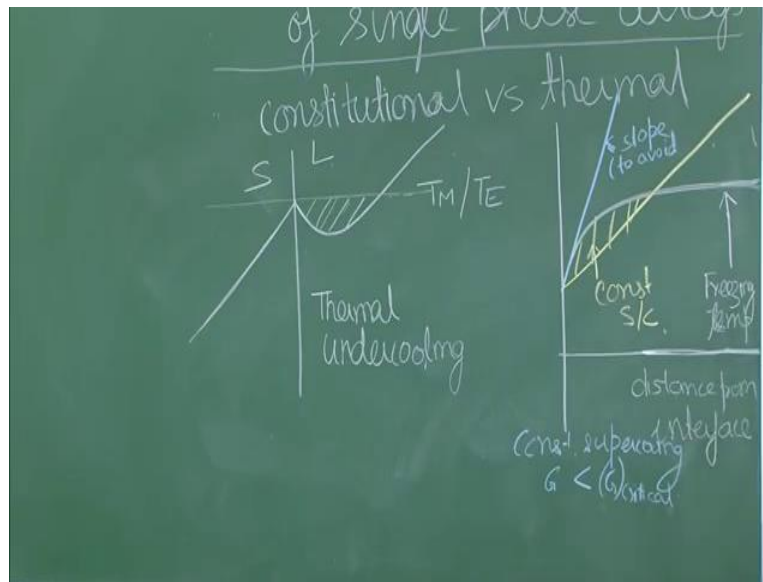 of single phase alloys
constitutional vs thermal
S L
TM/TE
Thermal
undercooling
slope
(to avoid
const
S/C.
Freezing
temp
distance from
interface
Const. supercooling
G < (G)critical